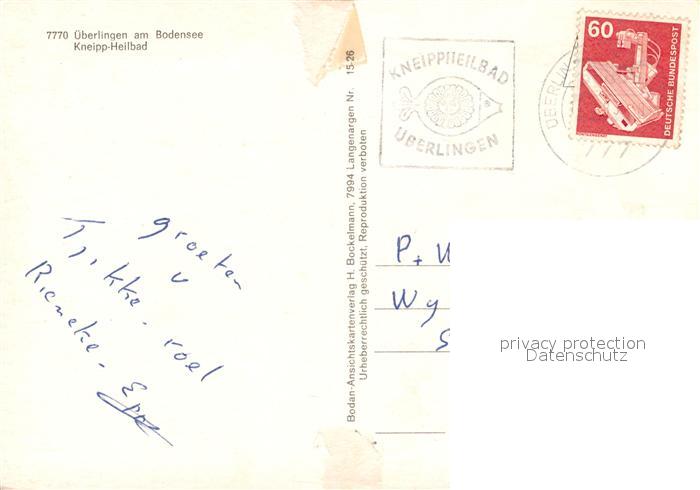 7770 Überlingen am Bodensee
Kneipp-Heilbad
Bodan-Ansichtskartenverlag H. Bockelmann, 7994 Langenargen Nr. 15-26
Urheberrechtlich geschützt, Reproduktion verboten
KNEIPPHEILBAD
ÜBERLINGEN
ÜBERLIN
777
60
DEUTSCHE BUNDESPOST
groeten
v
roel
Rieneke-
P+
Wy
S
privacy protection
Datenschutz